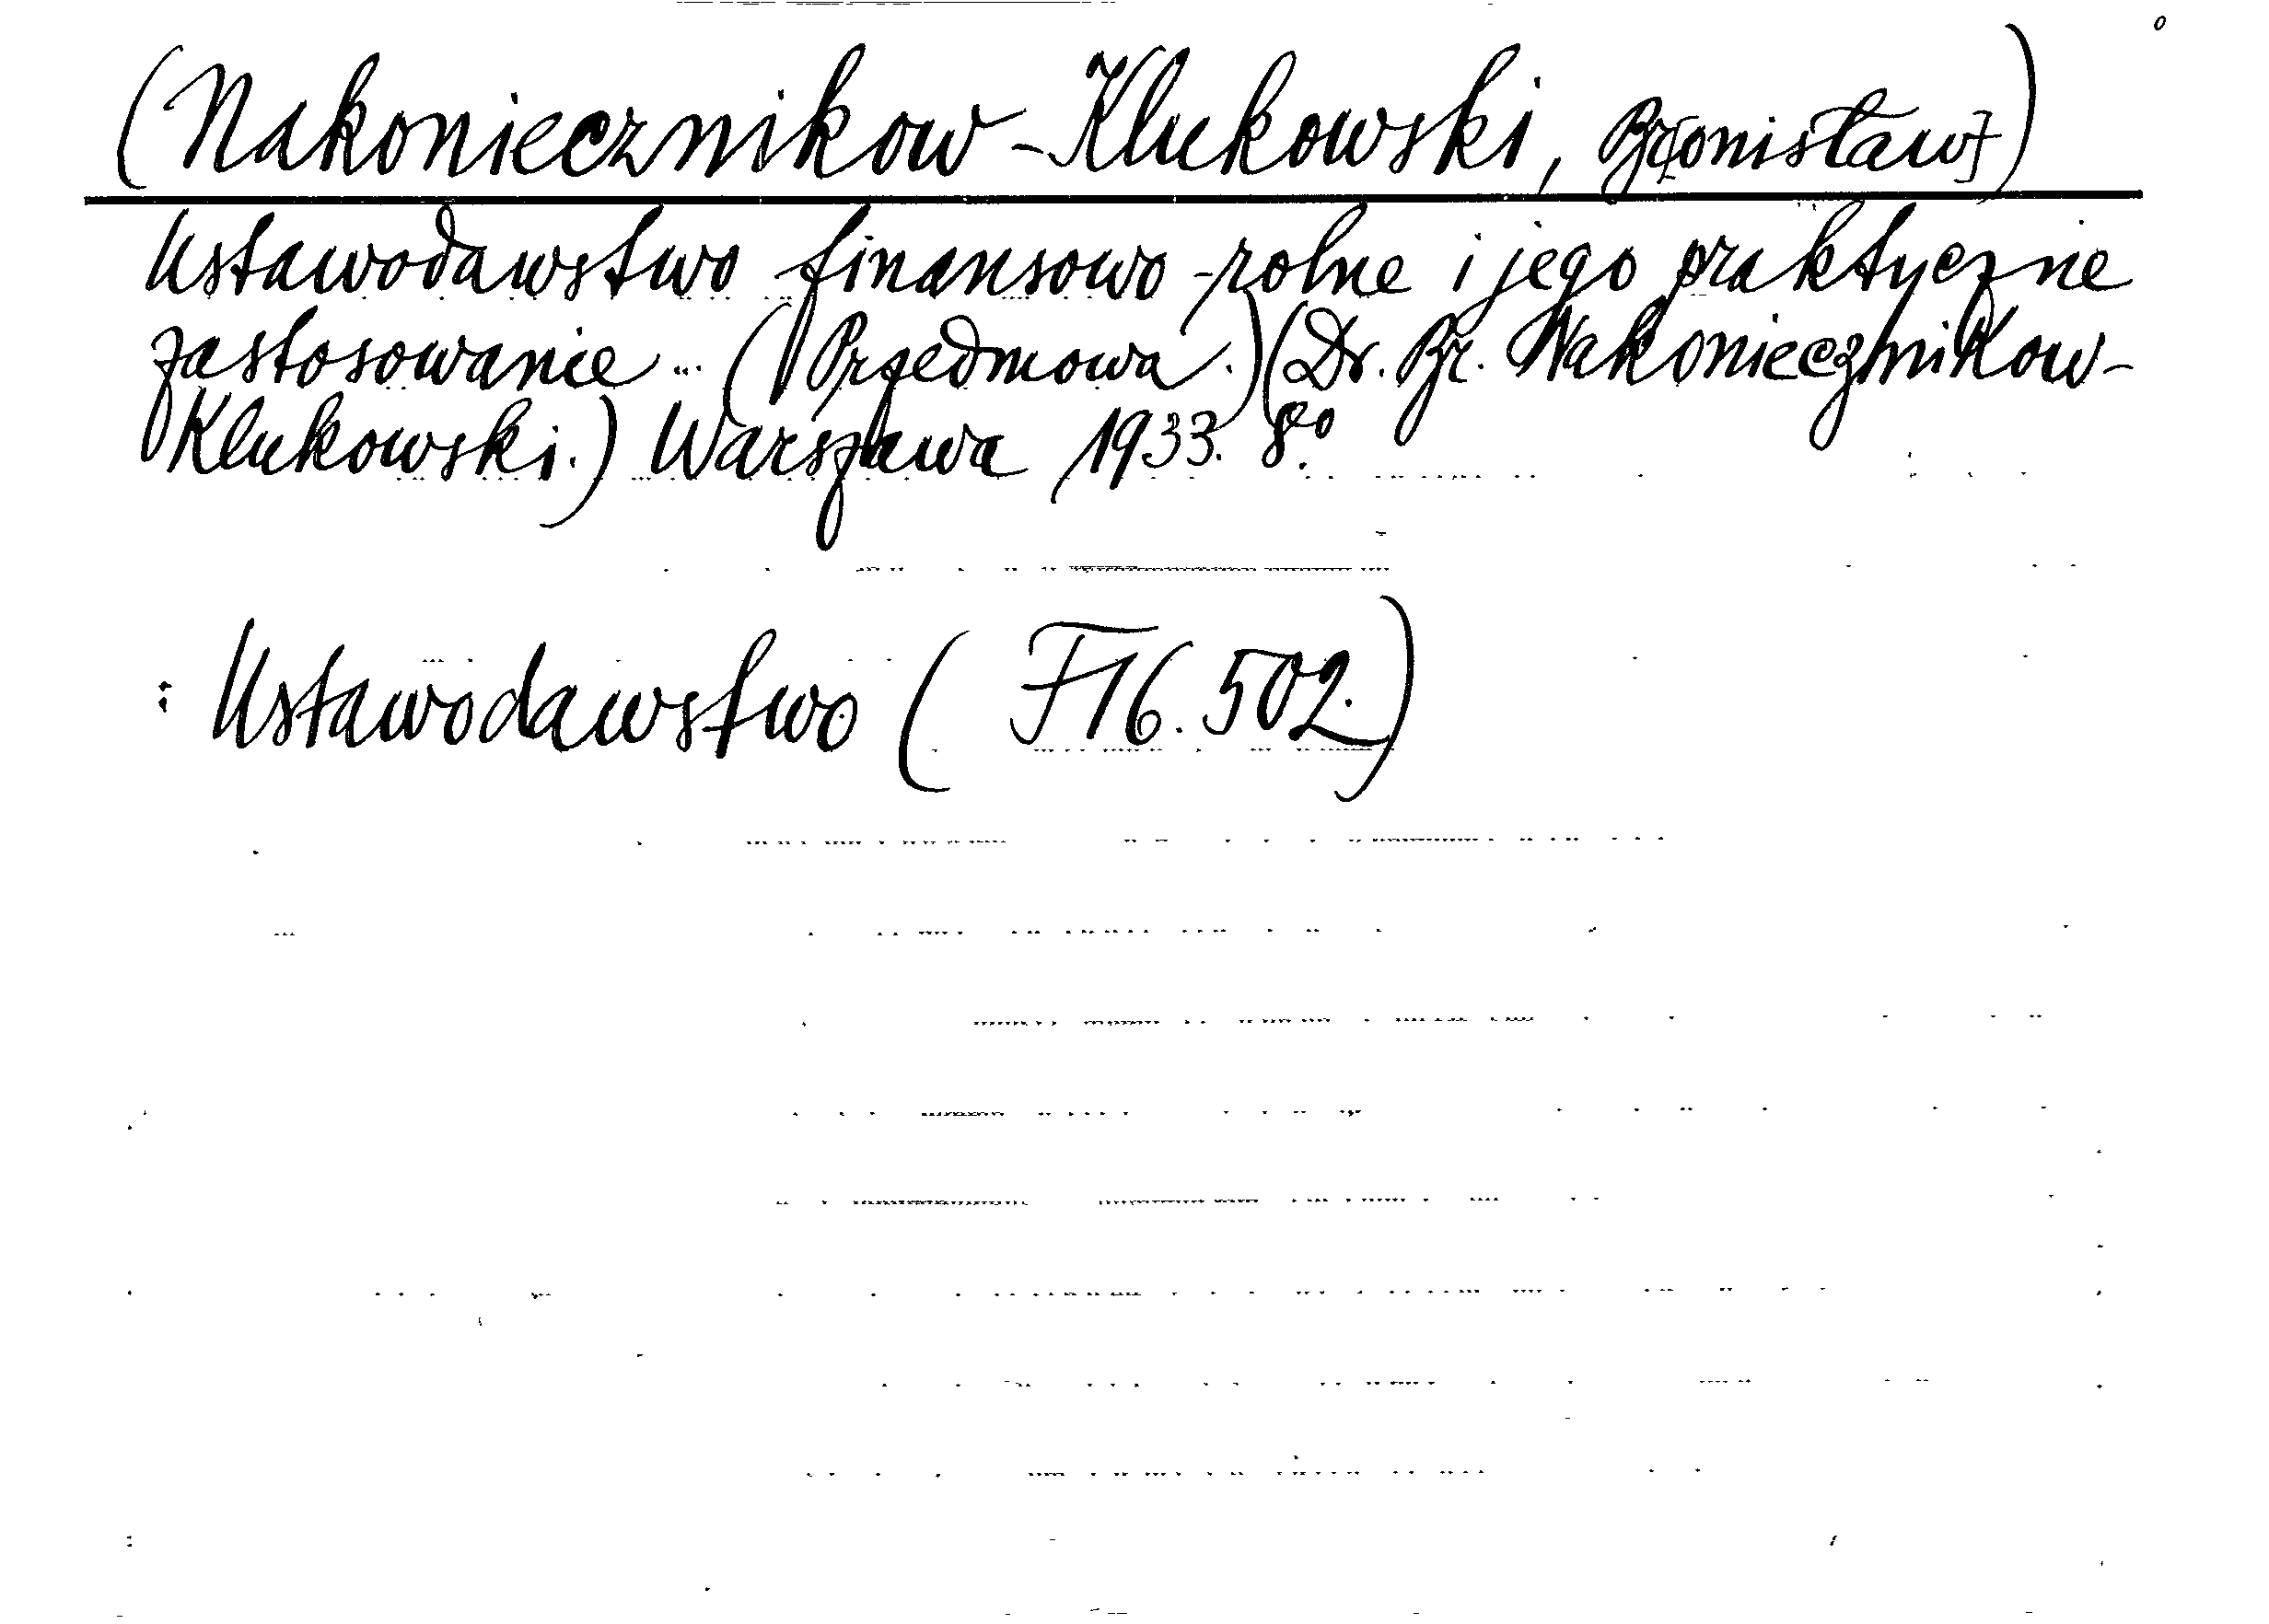 (Nakoniecznikow-Klukowski, Br[onisław])
Ustawodawstwo finansowo-rolne i jego praktyczne
zastosowanie ... (Przedmowa.) (Dr. Br. Nakoniecznikow-
Klukowski.) Warszawa 1933. 8°.
: Ustawodawstwo (F16.502.)